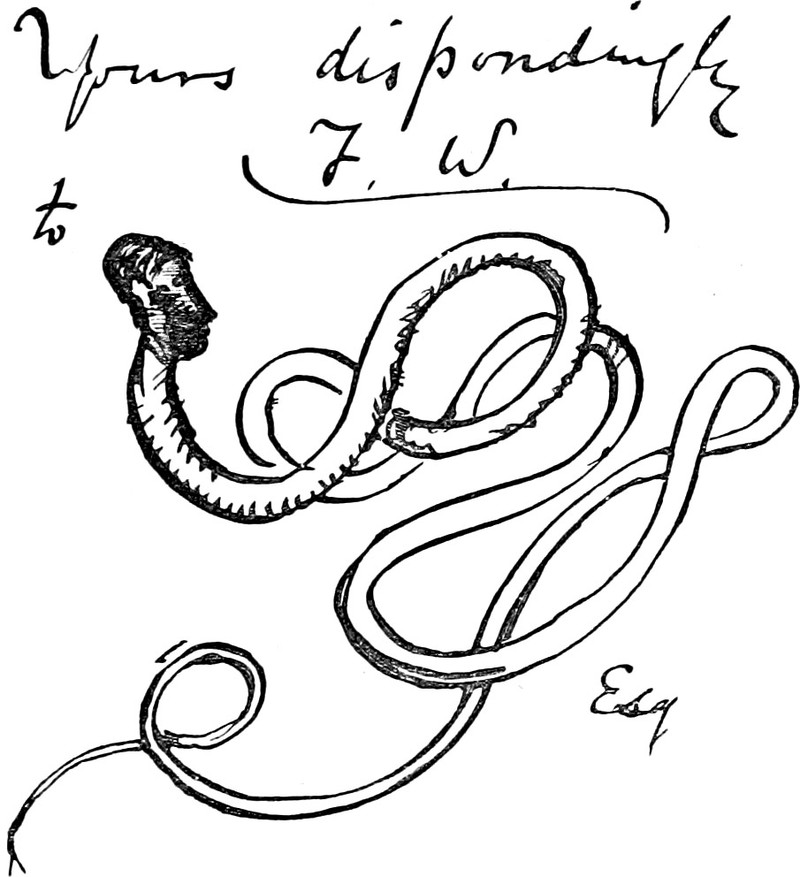 Yours dispondingly
F. W.
to
Esq